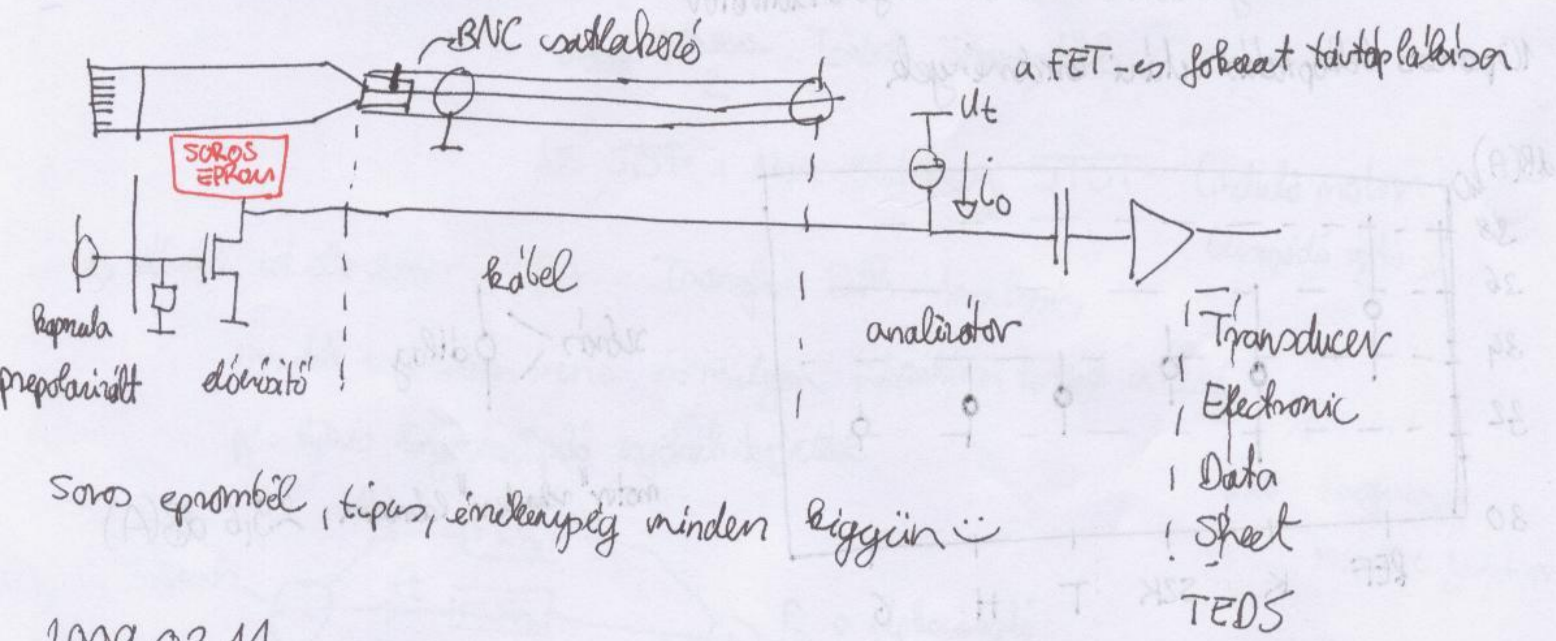 BNC csatlakozó
a FET-es fokozat távtáplálása
Ut
SOROS
EPROM
i0
kábel
kapszula
prepolarizált
előerősítő
analizátor
Transducer
Electronic
Data
Sheet
TEDS
Soros epromból, típus, érzékenység minden kiggyün :)
2009.03.11